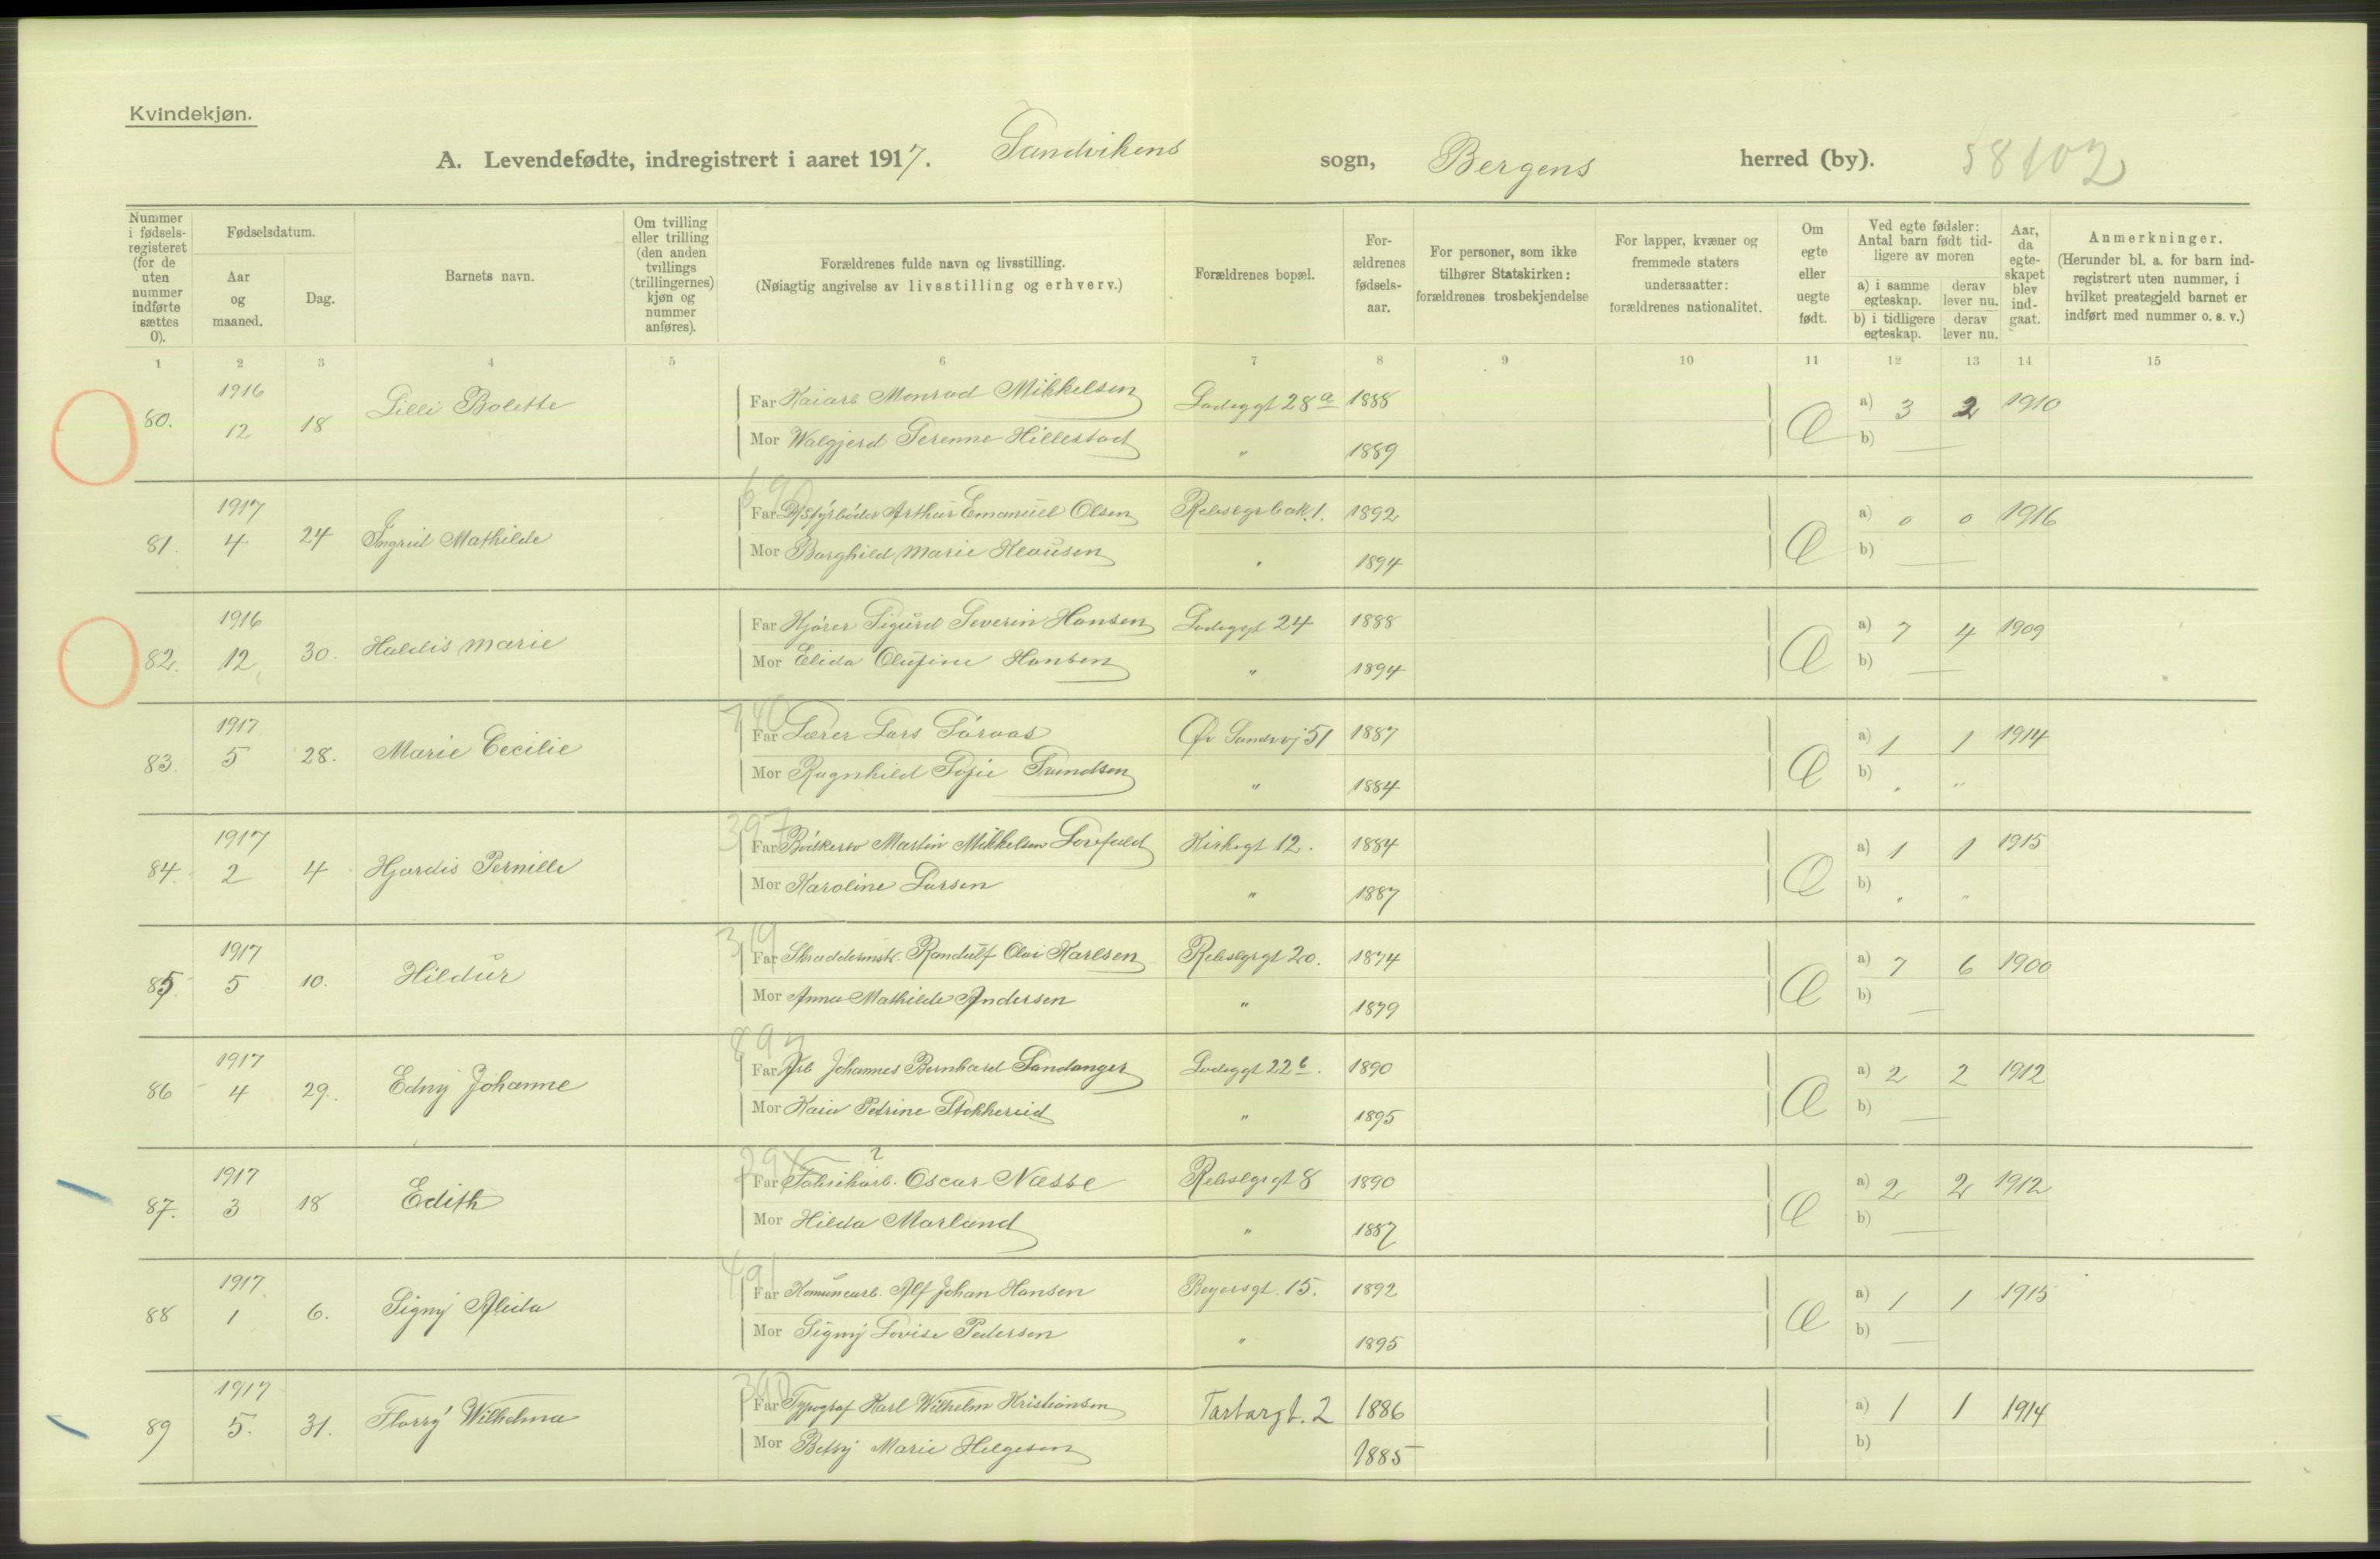 Kvindekjøn.
A. Levendefødte, indregistrert i aaret 1917. Sandvikens sogn, Bergens herred (by). 58102
Nummer i fødselsregisteret (for de uten nummer indførte sættes 0).
Fødselsdatum.
Aar og maaned.
Dag.
Barnets navn.
Om tvilling eller trilling (den anden tvillings (trillingernes) kjøn og nummer anføres).
Forældrenes fulde navn og livsstilling.
(Nøiagtig angivelse av livsstilling og erhverv.)
Forældrenes bopæl.
Forældrenes fødselsaar.
For personer, som ikke tilhører Statskirken: forældrenes trosbekjendelse
For lapper, kvæner og fremmede staters undersaatter: forældrenes nationalitet.
Om egte eller uegte født.
Ved egte fødsler: Antal barn født tidligere av moren
a) i samme egteskap.
derav lever nu.
b) i tidligere egteskap.
derav lever nu.
Aar, da egteskapet blev indgaat.
Anmerkninger.
(Herunder bl. a. for barn indregistrert uten nummer, i hvilket prestegjeld barnet er indført med nummer o. s. v.)
1 2 3 4 5 6 7 8 9 10 11 12 13 14 15
80. 1916 12 18 Lilli Bolette Far Kaiarb Monrad Mikkelsen Ladeggt 28a 1888 Æ a) 3 2 1910
Mor Walgjerd Serenne Hillestad " 1889 b) —
81. 1917 4 24 Ingrid Mathilde Far Arthur Emanuel Olsen Rebslgrbak. 1. 1892 Æ a) 0 0 1916
Mor Borghild Marie Klausen " 1894 b) —
82. 1916 12 30. Haldis Marie Far Kjører Sigurd Severin Hansen Ladeggt 24 1888 Æ a) 7 4 1909
Mor Elida Olufine Hansen " 1894 b) —
83. 1917 5 28. Marie Cecilie Far Lærer Lars Søraas Øv Sandvv 51 1887 Æ a) 1 1 1914
Mor Ragnhild Sofie Svendsen " 1884 b) " "
84. 1917 2 4 Hjørdis Pernille Far Martin Mikkelsen Kirkegt 12. 1884 Æ a) 1 1 1915
Mor Karoline Larsen " 1887 b) " "
85. 1917 5 10. Hildur Far Skræddermstr. Randulf Olai Karlsen Rebslgrgt 20. 1874 Æ a) 7 6 1900
Mor Anna Mathilde Andersen " 1879 b) —
86 1917 4 29. Edny Johanne Far Arb Johannes Bernhard Sandanger Ladeggt 22b. 1890 Æ a) 2 2 1912
Mor Kaia Petrine Stokkereid " 1895 b) —
87. 1917 3 18 Edith Far Fabrikarb. Oscar Næsse Rebslgrgt 8 1890 Æ a) 2 2 1912
Mor Hilda Marland " 1887 b) —
88 1917 1 6. Signy Alida Far Komunearb. Alf Johan Hansen Beyersgt. 15. 1892 Æ a) 1 1 1915
Mor Signy Lovise Pedersen " 1895 b) —
89 1917 5. 31. Florry Wilhelma Far Typograf Karl Wilhelm Kristiansen Tartargt. 2 1886 a) 1 1 1914
Mor Betsy Marie Helgesen 1885 b)